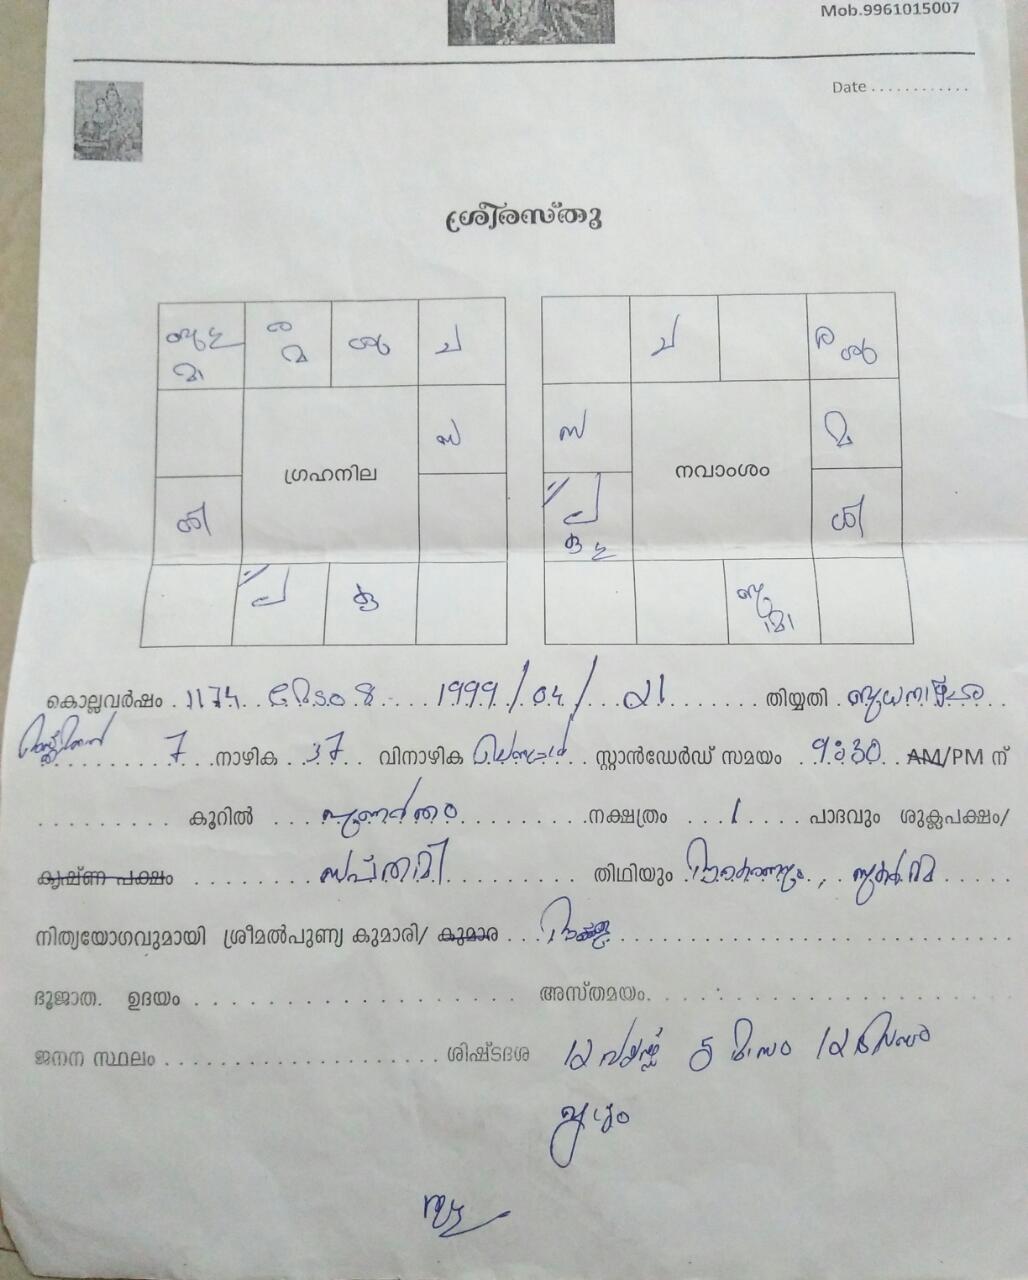 Mob.9961015007
Date ............
ശ്രീരസ്തു
ര ശു ച
മ
സ
ഗ്രഹനില
ശി
ല കു
ച ര ശു
സ മ
നവാംശം
ല ശി
കു
കൊല്ലവർഷം . 1174 . മേടം 8 ... 1999/04/21 ....... തിയ്യതി ബുധനാഴ്ച
7 നാഴിക 37 വിനാഴിക സ്റ്റാൻഡേർഡ് സമയം 9:30 AM/PM ന്
......... കൂറിൽ ... പുണർതം ......... നക്ഷത്രം ... 1 .... പാദവും ശുക്ലപക്ഷം/
കൃഷ്ണ പക്ഷം ........ സപ്തമി .......... തിഥിയും സുകർമ .....
നിത്യയോഗവുമായി ശ്രീമൽപുണ്യ കുമാരി/ കുമാര ...
ഭൂജാത. ഉദയം .................... അസ്തമയം....................
ജനന സ്ഥലം .................... ശിഷ്ടദശ 12 വയസ്സ് 5 മാസം 12 ദിവസം